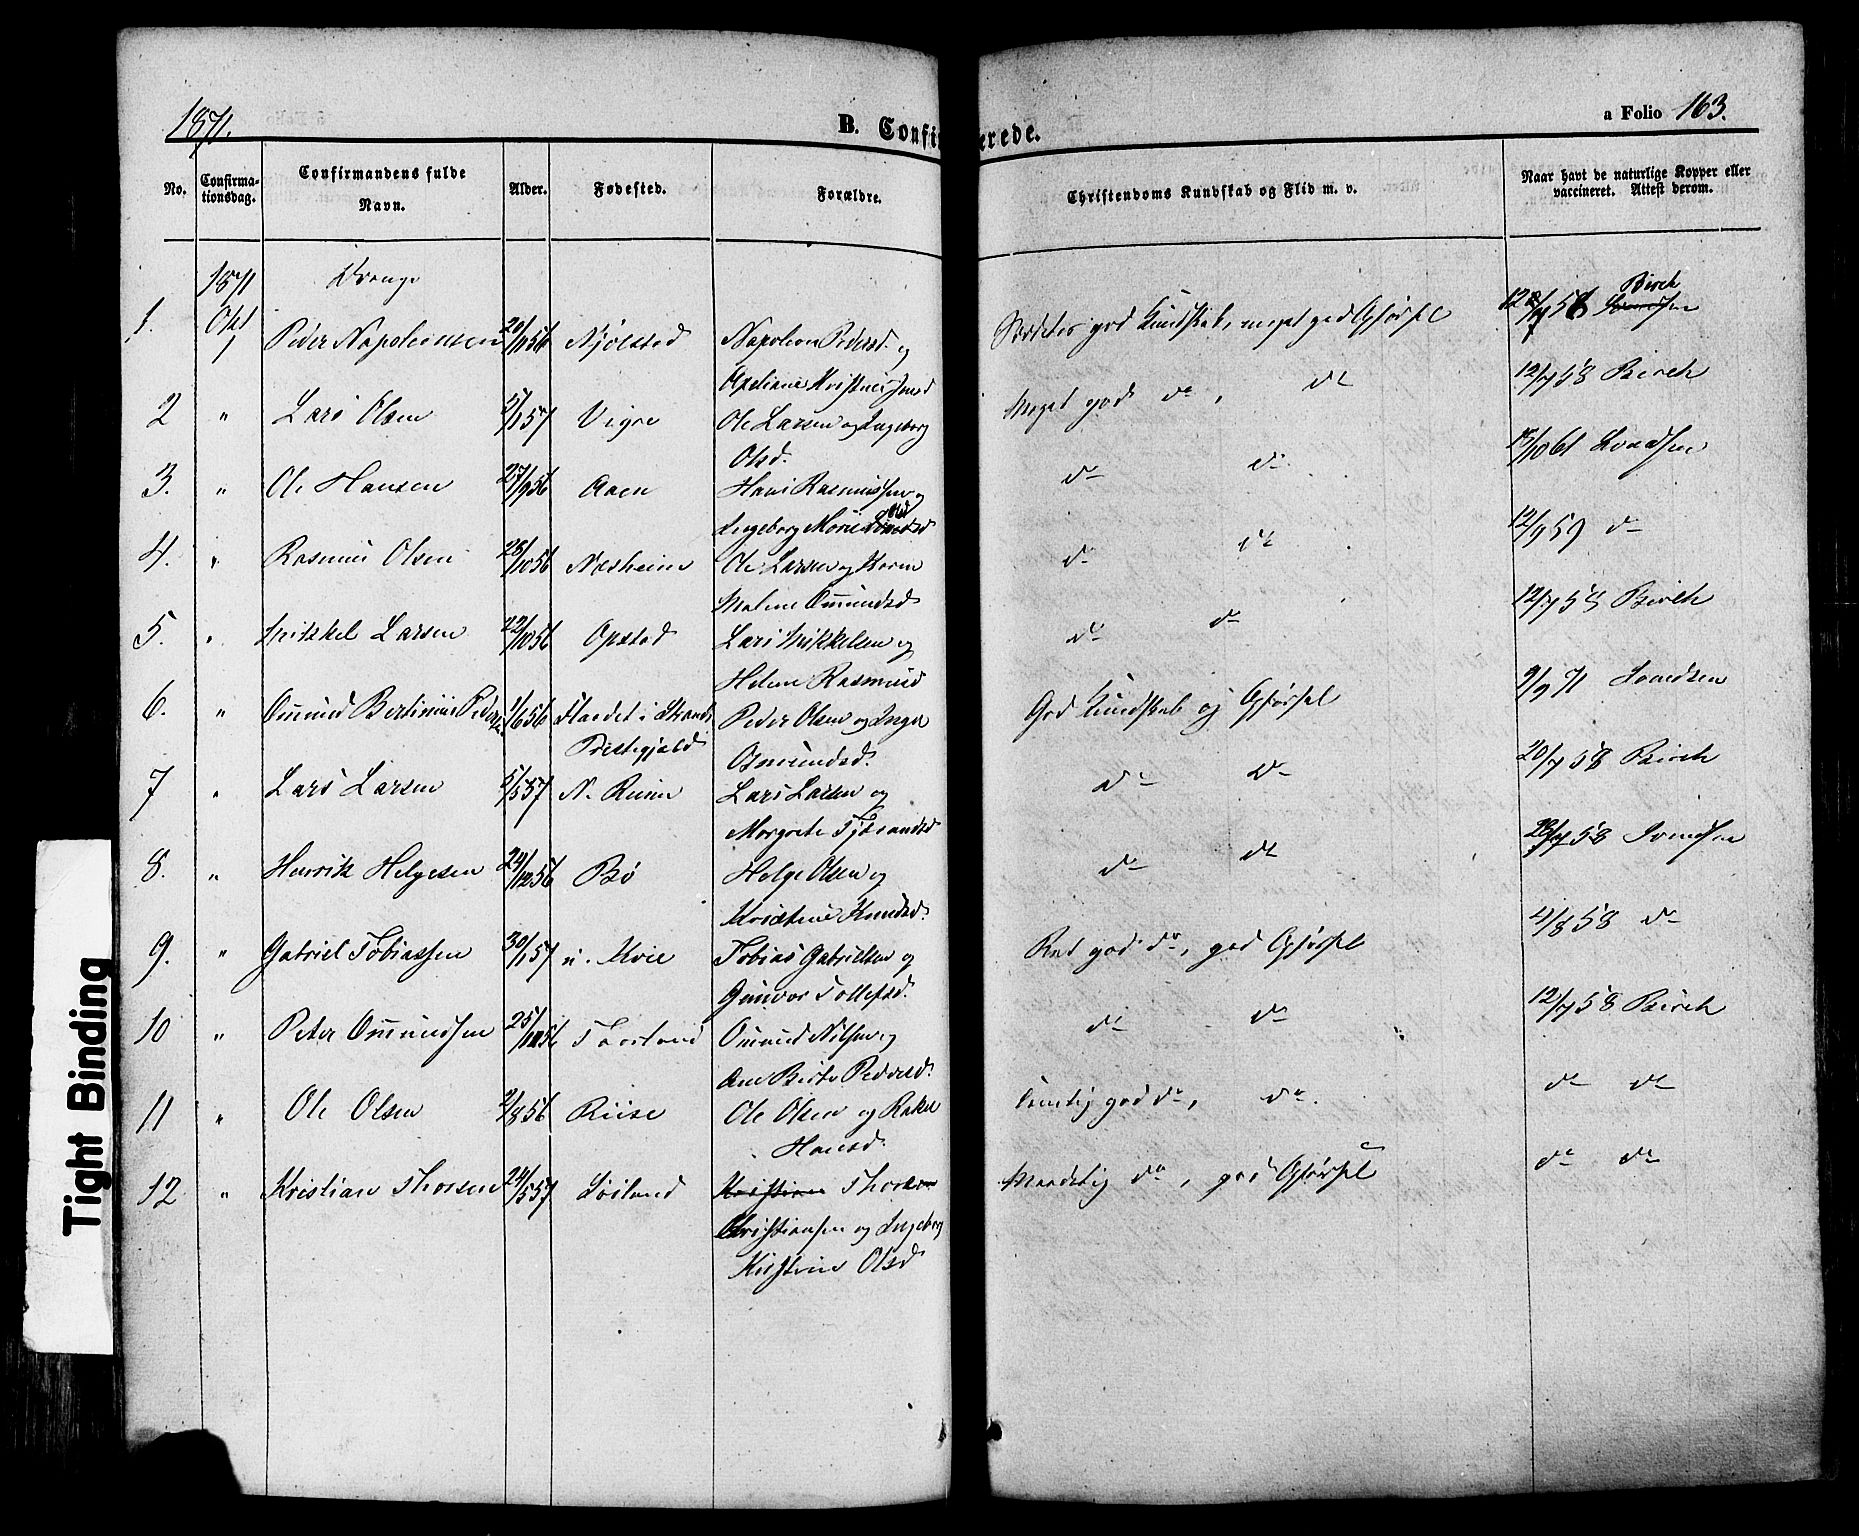 1871.
B. Confirmerede.
a Folio 163.
No. Confirmationsdag. Confirmandens fulde Navn. Alder. Fødested. Forældre. Christendoms Kundskab og Flid m. v. Naar havt de naturlige Kopper eller vaccineret. Attest derom.
1871 Drenge
1. Okt 1 Peder Napoleonsen 20/1156 Njølstad Napoleon Pedersd. og Kundskab, meget god Opførsel 12/756 Birch
2 " Lars Olsen 5/157 Vigre Ole Larsen og Ingeborg Olsd. Meget god do, do 12/758 Birch
3. " Ole Hansen 27/956 Aaen Hans Rasmussen og Ingeborg Marie Olsd do do 15/1061 Svendsen
4. " Rasmus Olsen 28/1056 Næsheim Ole Larsen og Karen Malene Omundsd do do 12/959 do
5. " Mikkel Larsen 22/1056 Opstad Lars Mikkelsen og Helene Rasmusd do do 12/758 Birch
6. " Omund Bertinius Peders. 1/656 i Strands Prestegjæld Peder Olsen og Inger Osmundsd. God Kundskab og Opførsel 9/971 Svendsen
7 " Lars Larsen 5/557 N. Lars Larsen og Margrete Tjærandsd do do 20/758 Birch
8. " Henrik Helgesen 29/1256 Bø Helge Olsen og Kristine Knudsd. do do 58 Svendsen
9. " Gabriel Tobiassen 30/157 n. Kvie Tobias Gabrielsen og Gunvor Tollefsd. Ret god do, god Opførsel 4/858 do
10 " Peter Omundsen 25/1256 Omund Nilsen og Ane Berta Pedersd. do do 12/758 Birch
11 " Ole Olsen 2/856 Riise Ole Olsen og Rakel Hansd. Temlig god do, do. do do
12 " Kristian Thorsen 24/557 Søiland Kristian Thorsen Christiansen og Ingeborg Kirstine Olsd Maadelig do, god Opførsel do do
Tight Binding